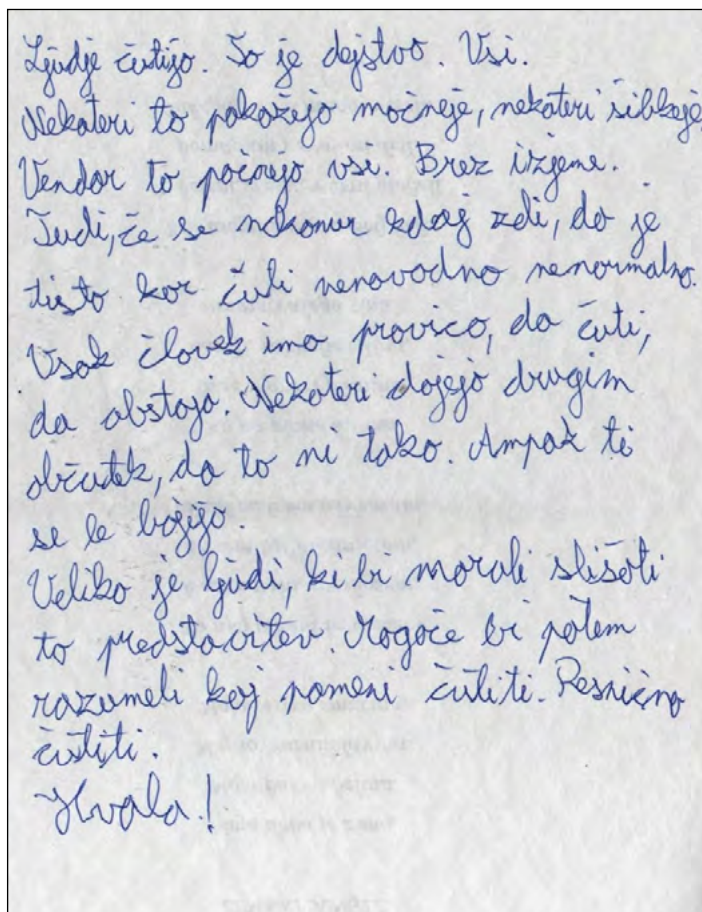 Ljudje čutijo. To je dejstvo. Vsi.
Nekateri to pokažejo močneje, nekateri šibkeje,
Vendar to počnejo vsi. Brez izjeme.
Tudi, če se nekomur kdaj zdi, da je
tisto kar čuti nenavadno nenormalno.
Vsak človek ima pravico, da čuti,
da obstaja. Nekateri dajejo drugim
občutek, da to ni tako. Ampak ti
se le bojijo.
Veliko je ljudi, ki bi morali slišati
to predstavitev. Mogoče bi potem
razumeli kaj pomeni čutiti. Resnično
čutiti.
Hvala!